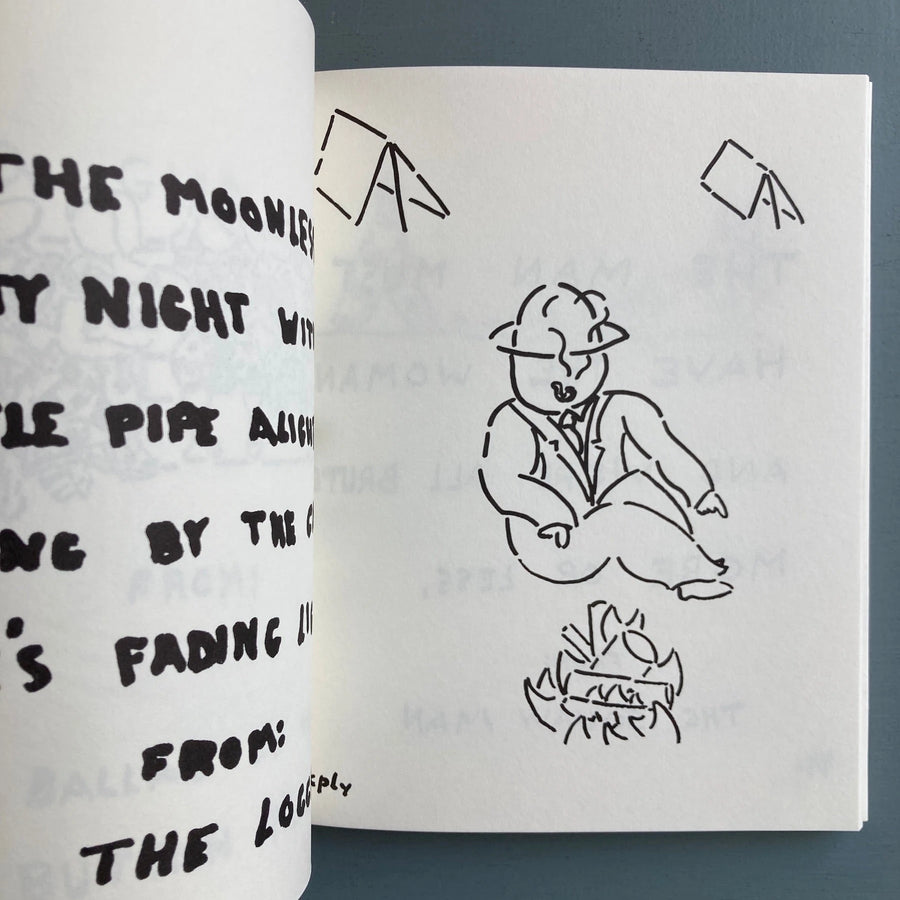 THE MOONLES
TY NIGHT WIT
LE PIPE ALIGH
NG BY THE
'S FADING LI
FROM:
THE LOGG
cply